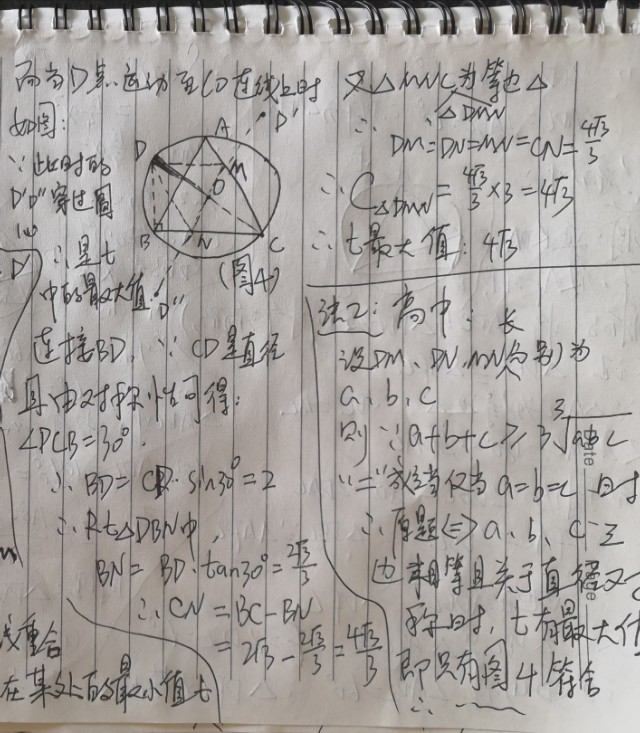 而当D点运动至CO连线上时
如图:
∵此时的
D'D"穿过圆
∴是t
中的最大值.
A
D'
D
M
O
B
N
C
D"
(图4)
连接BD, ∵CD是直径
且由对称性可得:
∠DCB=30°.
∴BD=CD·sin30°=2
∴Rt△DBN中,
BN=BD·tan30°=2√3/3
∴CN=BC-BN
=2√3-2√3/3=4√3/3
重合
在某处上的最小值t
又△MNC为等边△
∴△DMN
DM=DN=MN=CN=4√3/3
∴C△DMN=4√3/3×3=4√3
∴t最大值:4√3
法2:高中:
设DM、DN、MN长分别为
a、b、c
则∵a+b+c≥3∛abc
"="放当仅当a=b=c时
∴原题⟺a、b、c三
边相等且关于直径对
称时,t有最大值
即只有图4符合
∴